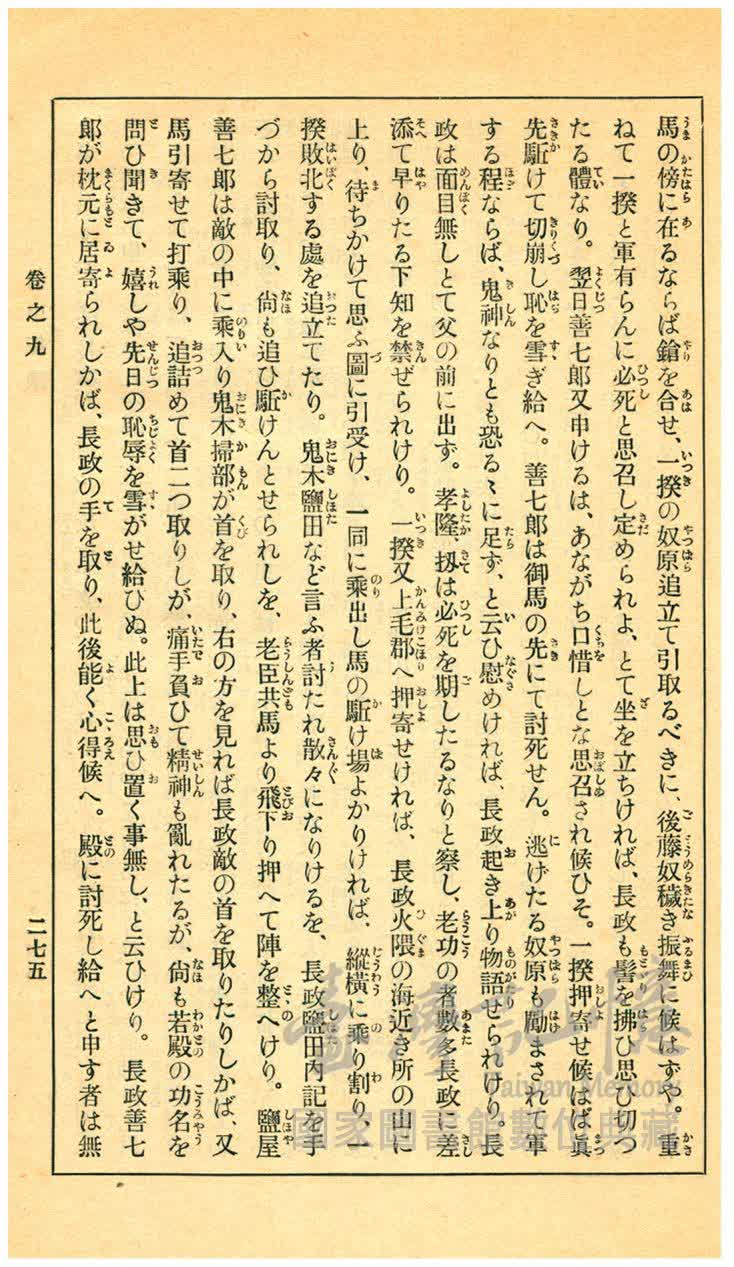 馬の傍に在るならば鎗を合せ、一揆の奴原追立て引取るべきに、後藤奴穢き振舞に候はずや。重
ねて一揆と軍有らんに必死と思召し定められよ、とて坐を立ちければ、長政も髻を拂ひ思ひ切つ
たる體なり。翌日善七郎又申けるは、あながち口惜しとな思召され候ひそ。一揆押寄せ候はば眞
先駈けて切崩し恥を雪ぎ給へ。善七郎は御馬の先にて討死せん。逃げたる奴原も勵まされて軍
する程ならば、鬼神なりとも恐るゝに足ず、と云ひ慰めければ、長政起き上り物語せられけり。長
政は面目無しとて父の前に出ず。孝隆、扨は必死を期したるなりと察し、老功の者數多長政に差
添て早りたる下知を禁ぜられけり。一揆又上毛郡へ押寄せければ、長政火隈の海近き所の山に
上り、待ちかけて思ふ圖に引受け、一同に乘出し馬の駈け場よかりければ、縱橫に乘り割り、一
揆敗北する處を追立てたり。鬼木鹽田など言ふ者討たれ散々になりけるを、長政鹽田内記を手
づから討取り、尙も追ひ駈けんとせられしを、老臣共馬より飛下り押へて陣を整へけり。鹽屋
善七郎は敵の中に乘入り鬼木掃部が首を取り、右の方を見れば長政敵の首を取りたりしかば、又
馬引寄せて打乘り、追詰めて首二つ取りしが、痛手負ひて精神も亂れたるが、尙も若殿の功名を
問ひ聞きて、嬉しや先日の恥辱を雪がせ給ひぬ。此上は思ひ置く事無し、と云ひけり。長政善七
郎が枕元に居寄られしかば、長政の手を取り、此後能く心得候へ。殿に討死し給へと申す者は無
卷之九
二七五
臺灣記憶
Taiwan Memory
國家圖書館數位典藏